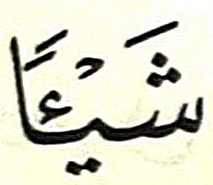 شَيْـًٔا